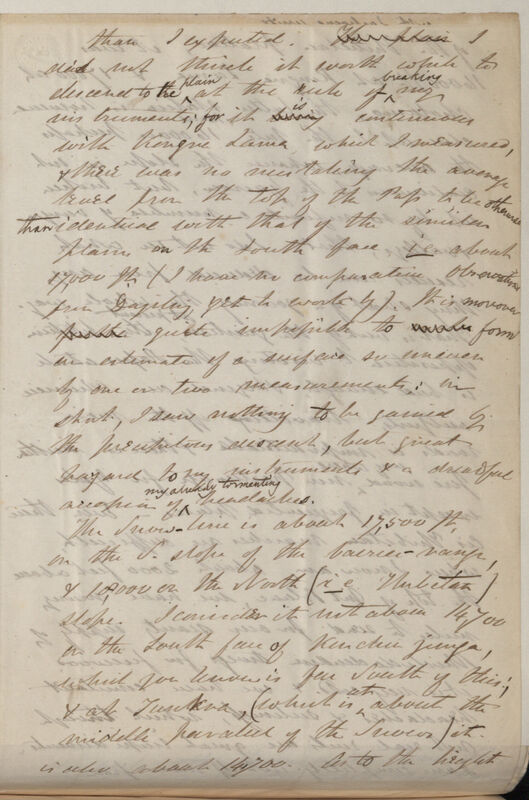 than I expected. I
did not think it worth while to
descend to the plain at the risk of breaking my
instruments; for it is continuous
with Kongra Lama, which I measured,
& there was no mistaking the average
level from the top of the Pass to be otherwise
than identical with that of the similar
plains on the South face i.e about
17,000 ft. (I have the comparative Observations
from Dorjling yet to work up). It is moreover
quite impossible to form
an estimate of a surface so uneven
by one or two measurements: in
short, I saw nothing to be gained by
the precipitous descent, but great
hazard to my instruments & a dreadful
accession of my already tormenting headaches.
The Snow-line is about 17,500 ft,
on the S. slope of the barrier-range,
& on the North (i.e Thibetan)
slope. I consider it not above 14,700
on the South face of Kinchin junga,
which you know is far South of this;
& at Tunkra, (which is about the
middle parallel of the Snows) it
is also about 14,700. As to the height